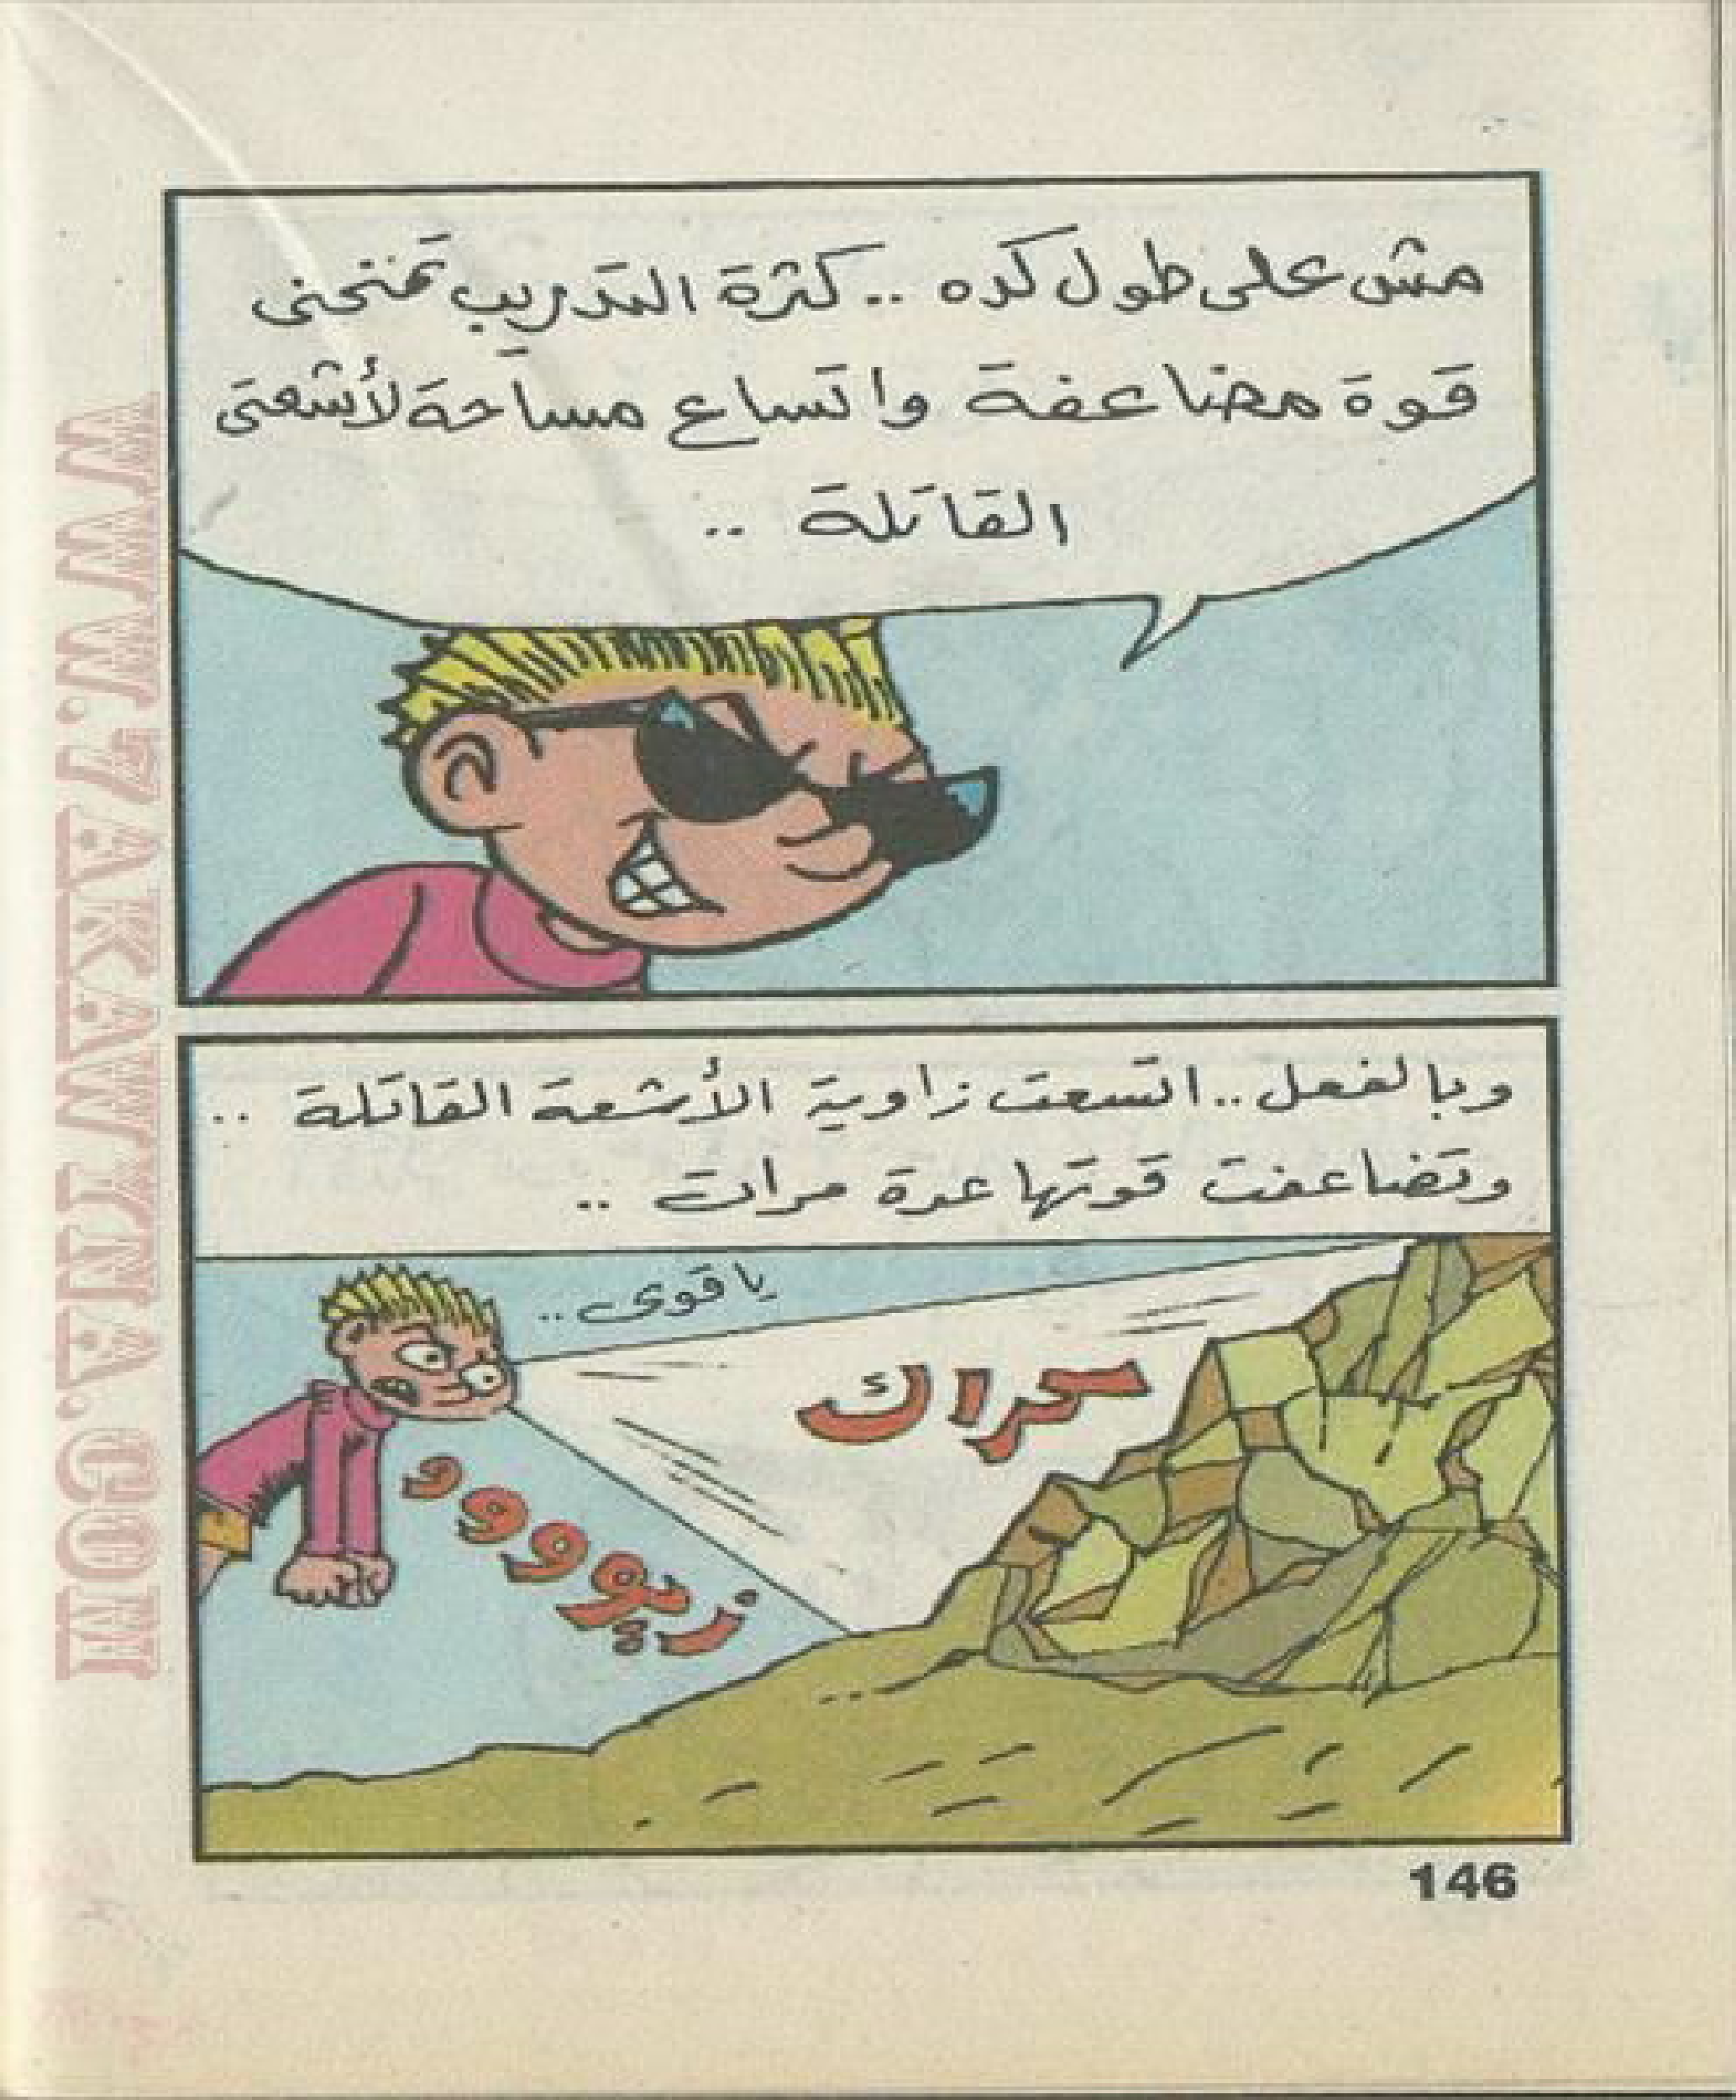 مش على طول كده .. كثرة التدريب تمنحنى
قوة مضاعفة واتساع مساحة لأشعتى
القاتلة ..
وبالفعل .. اتسعت زاوية الأشعة القاتلة ..
وتضاعفت قوتها عدة مرات ..
يا قوى ..
حراك
زيوووو
146
WWW.7AKAWITNA.COM